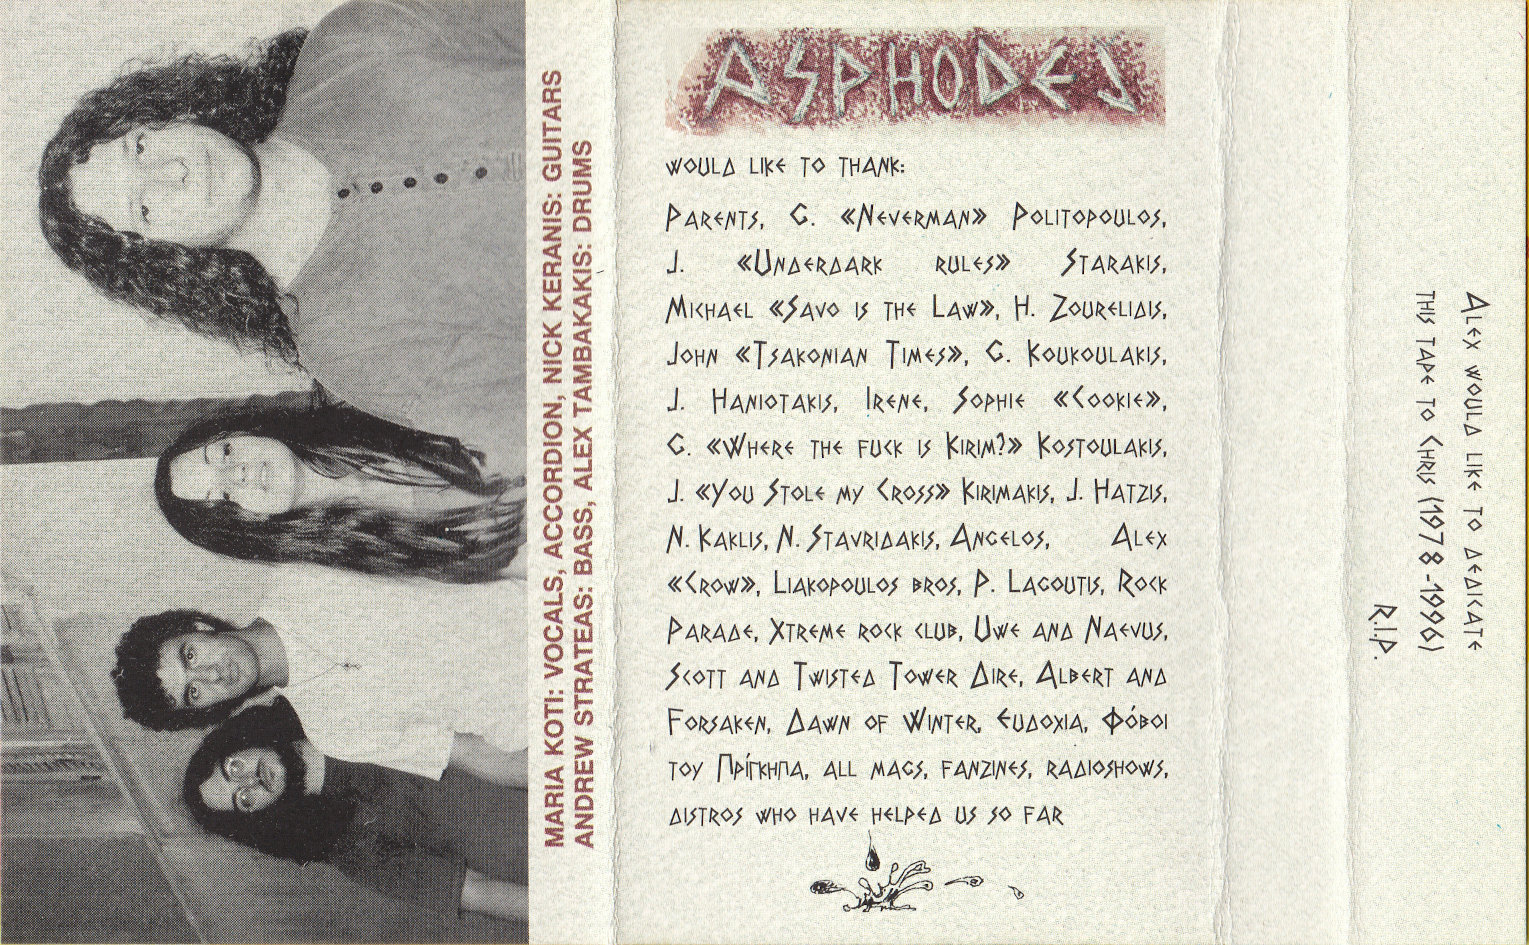 MARIA KOTI: VOCALS, ACCORDION, NICK KERANIS: GUITARS
ANDREW STRATEAS: BASS, ALEX TAMBAKAKIS: DRUMS
ASPHODEL
WOULD LIKE TO THANK:
PARENTS, G. «NEVERMAN» POLITOPOULOS,
J. «UNDERDARK RULES» STARAKIS,
MICHAEL «SAVO IS THE LAW», H. ZOURELIDIS,
JOHN «TSAKONIAN TIMES», G. KOUKOULAKIS,
J. HANIOTAKIS, IRENE, SOPHIE «COOKIE»,
G. «WHERE THE FUCK IS KIRIM?» KOSTOULAKIS,
J. «YOU STOLE MY CROSS» KIRIMAKIS, J. HATZIS,
N. KAKLIS, N. STAVRIDAKIS, ANGELOS, ALEX
«CROW», LIAKOPOULOS BROS, P. LAGOUTIS, ROCK
PARADE, XTREME ROCK CLUB, UWE AND NAEVUS,
SCOTT AND TWISTED TOWER DIRE, ALBERT AND
FORSAKEN, DAWN OF WINTER, EUDOXIA, ΦΌΒΟΙ
ΤΟΥ ΠΡΊΓΚΗΠΑ, ALL MAGS, FANZINES, RADIOSHOWS,
DISTROS WHO HAVE HELPED US SO FAR
ALEX WOULD LIKE TO DEDICATE
THIS TAPE TO CHRIS (1978-1996)
R.I.P.